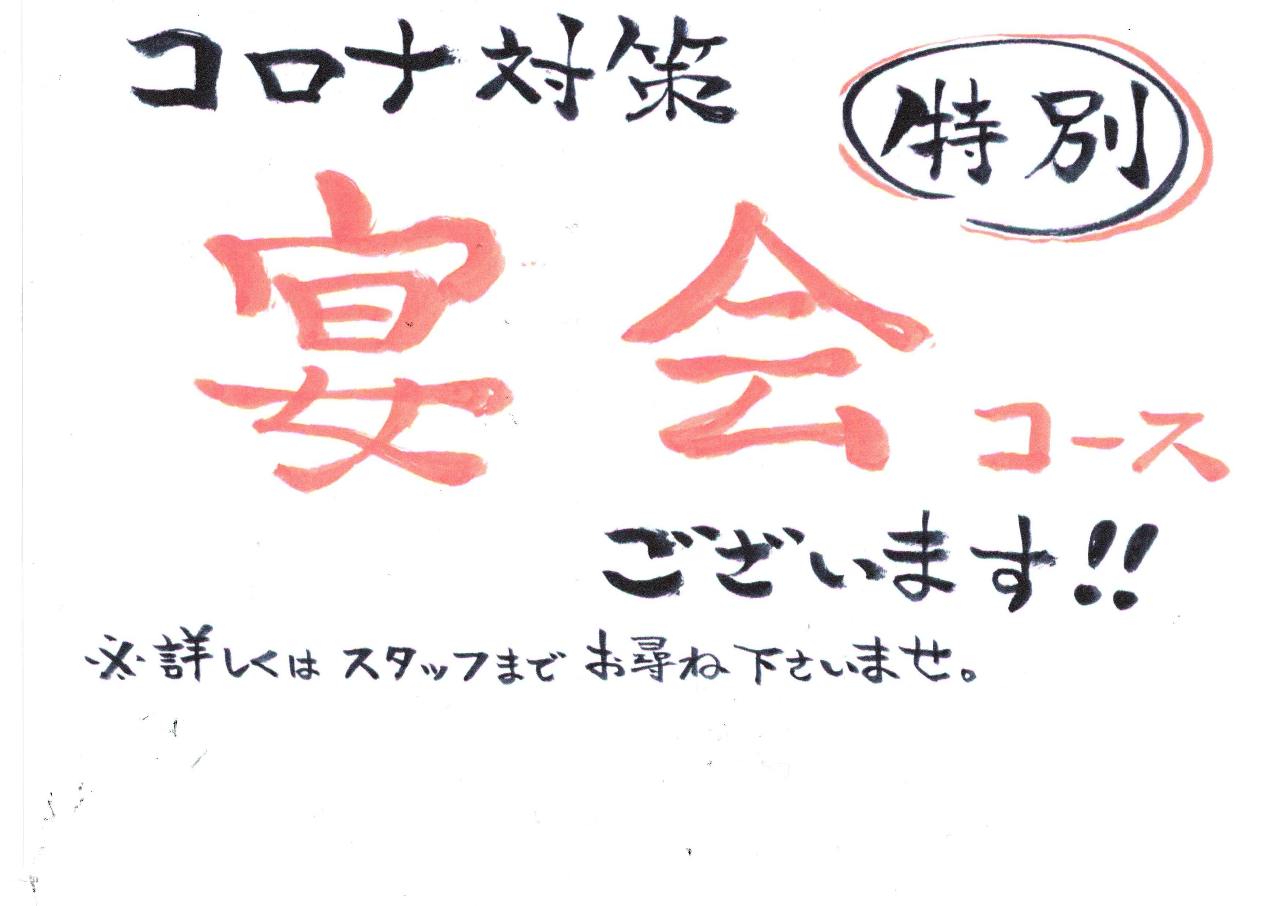 コロナ対策
特別
宴会コース
ございます!!
※詳しくはスタッフまでお尋ね下さいませ。